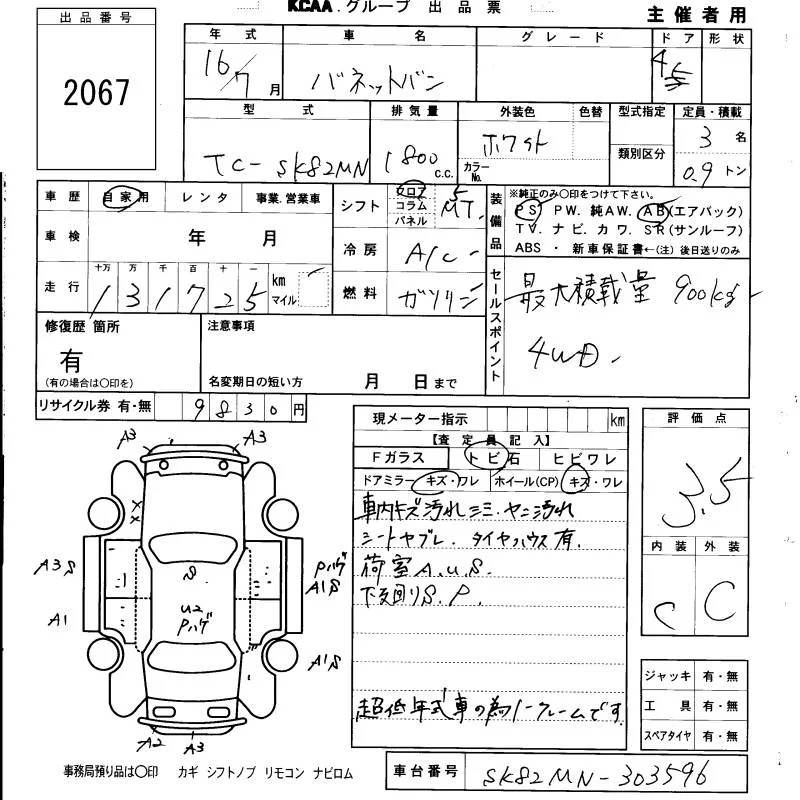 KCAA.グループ 出品票
主催者用
出品番号
2067
年式 車名 グレード ドア 形状
16/7月 バネットバン 45
型式 排気量 外装色 色替 型式指定 定員・積載
TC-SK82MN 1800 c.c. ホワイト カラーNo. 類別区分 3名
0.9トン
車歴 自家用 レンタ 事業.営業車
シフト フロア コラム パネル 5 MT.
装備品 ※純正のみ○印をつけて下さい。
PS PW. 純AW. AB(エアバック)
TV. ナビ. カワ. SR(サンルーフ)
ABS ・ 新車保証書←(注)後日送りのみ
車検 年 月
冷房 A/C
走行 十万 万 千 百 十 一
131725 km マイル
燃料 ガソリン
セールスポイント 最大積載量 900kg
4WD.
修復歴 箇所
有
(有の場合は○印を)
注意事項
名変期日の短い方 月 日まで
リサイクル券 有・無 9830円
現メーター指示 km
【査定員記入】
Fガラス トビ石 ヒビワレ
ドアミラー キズ・ワレ ホイール(CP) キズ・ワレ
車内キズ汚れミミ.ヤニ汚れ
シートヤブレ. タイヤハウス有.
荷室A.U.S.
下廻りS.P.
超低年式車の為ノークレームです
評価点
3.5
内装 外装
C C
ジャッキ 有・無
工具 有・無
スペアタイヤ 有・無
A3 A3
A3S S Pハゲ
A1S
A1 U2
Pハゲ
A1S
A2 A3
事務局預り品は○印 カギ シフトノブ リモコン ナビロム
車台番号 SK82MN-303596